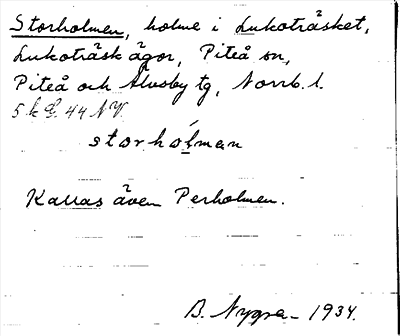 Storholmen, holme i Lukoträsket,
Lukoträsk ägor, Piteå sn,
Piteå och Älvsby tg, Norrb. l.
5 k G. 44 NV.
storhólman
Kallas även Perholmen.
B. Nygren 1934.